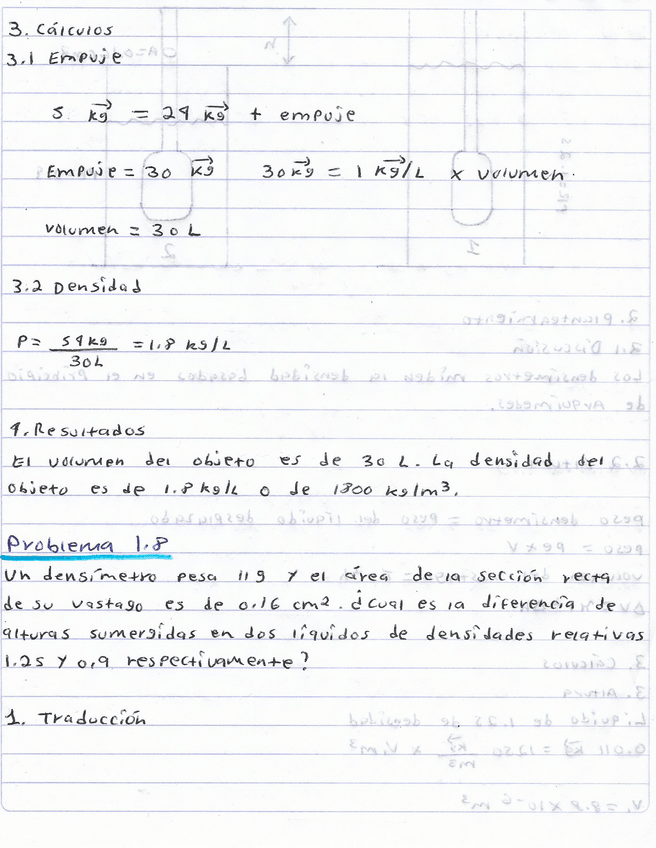 3. Cálculos
3.1 Empuje
5 kg = 24 kg + empuje
Empuje = 30 kg 30 kg = 1 kg/L x volumen.
volumen = 30 L
3.2 Densidad
P = 54kg / 30L = 1.8 kg/L
4. Resultados
El volumen del objeto es de 30 L. La densidad del
objeto es de 1.8 kg/L o de 1800 kg/m³.
Problema 1.8
Un densímetro pesa 11g y el área de la sección recta
de su vastago es de 0.16 cm². ¿cual es la diferencia de
alturas sumergidas en dos líquidos de densidades relativas
1.25 y 0.9 respectivamente?
1. Traducción